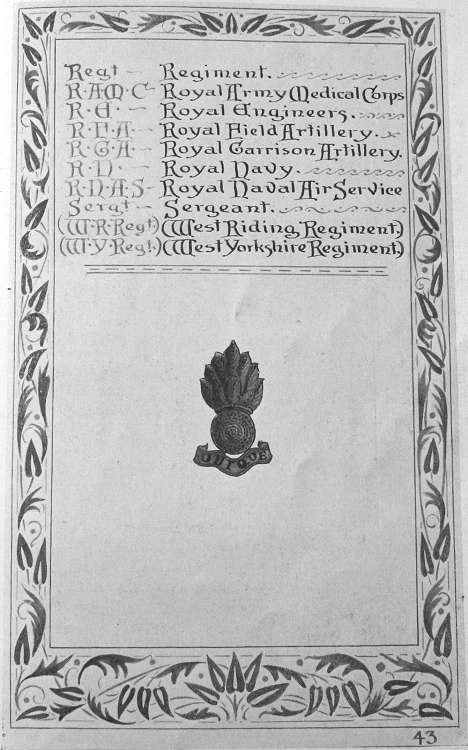 Regt - Regiment.
R·A·M·C - Royal Army Medical Corps
R·E· - Royal Engineers.
R·F·A - Royal Field Artillery.
R·G·A - Royal Garrison Artillery.
R·N· - Royal Navy.
R·N·A·S - Royal Naval Air Service
Sergt - Sergeant.
(W·R·Regt.) (West Riding Regiment.)
(W·Y·Regt.) (West Yorkshire Regiment.)
UBIQUE
43